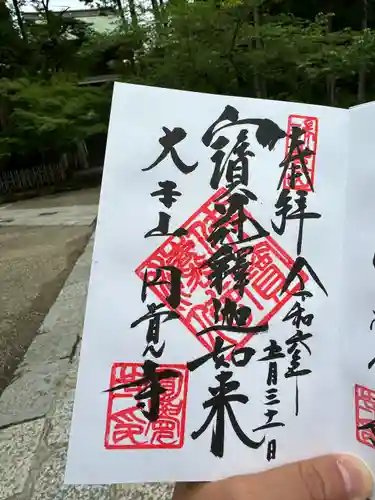 奉拝
令和六年
五月三十一日
宝冠釋迦如来
大本山
円覚寺